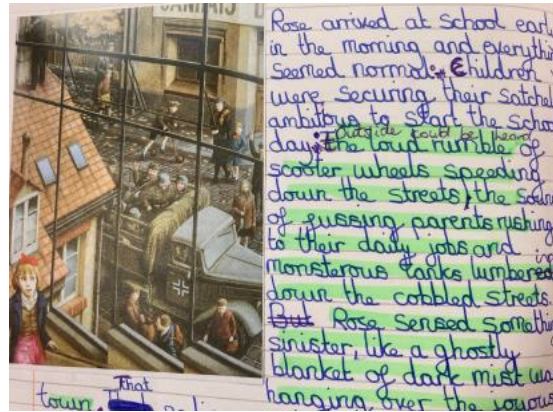 Rose arrived at school earl
in the morning and everythin
seemed normal. Children
were securing their satchel
ambitious to start the scho
Outside could be heard
day. the loud rumble of
scooter wheels speeding
down the streets, the soun
of fussing parents rushing
to their daily jobs and
monsterous tanks lumbering
down the cobbled streets.
But Rose sensed somethi
sinister, like a ghostly
blanket of dark mist was
hanging over the joyous
town. That